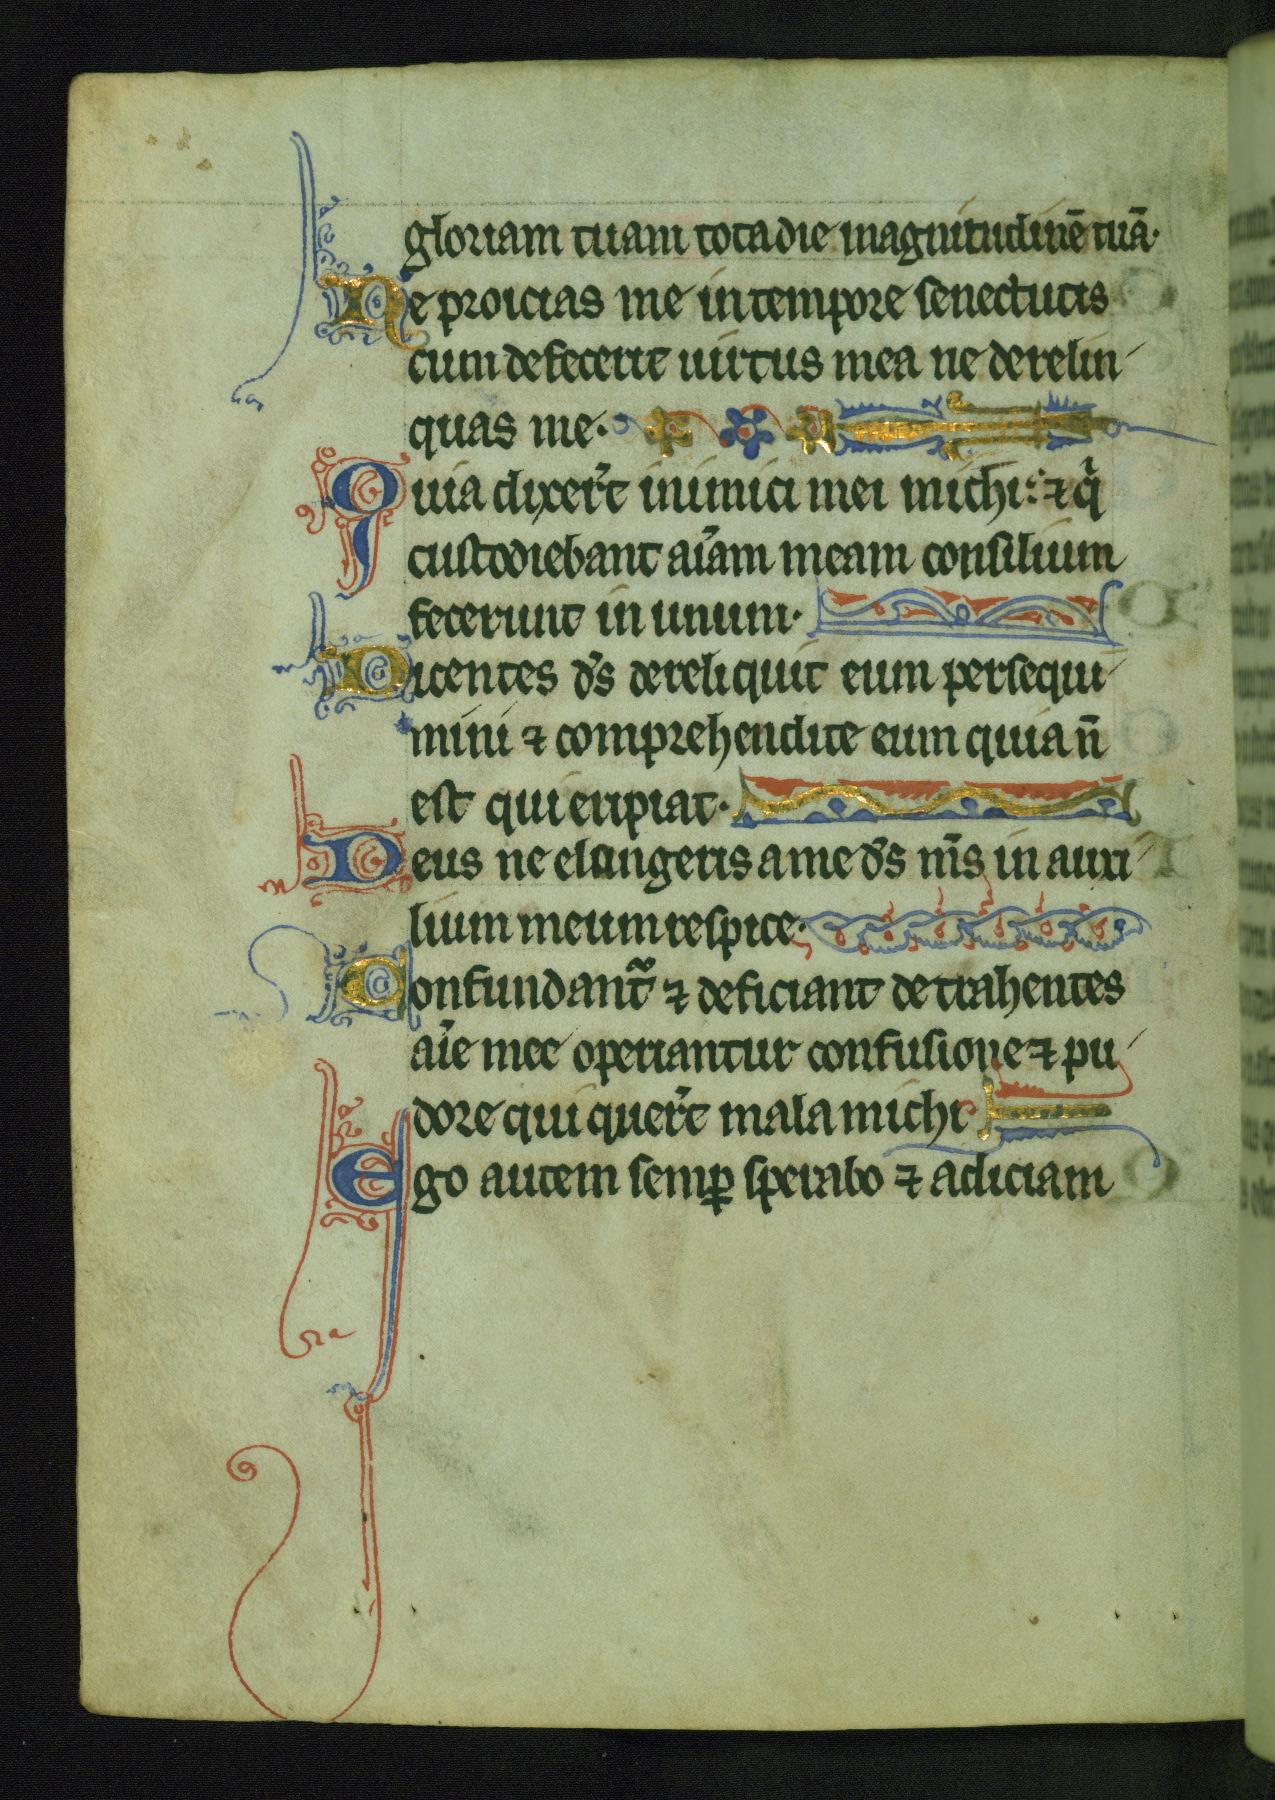 gloriam tuam tota die magnitudinē tuā·
Ne proicias me in tempore senectutis
cum defecerit uirtus mea ne derelin
quas me·
Quia dixer̄t inimici mei michi: ⁊ qͥ
custodiebant aīam meam consilium
fecerunt in unum·
Dicentes d̄s dereliquit eum persequi
mini ⁊ comprehendite eum quia n̄
est qui eripiat·
Deus ne elungeris a me d̄s m̄s in auxi
lium meum respice·
Confundant᷑ ⁊ deficiant detrahentes
aīe mee operiantur confusione ⁊ pu
dore qui quer̄t mala michi
Ego autem semꝑ sperabo ⁊ adiciam